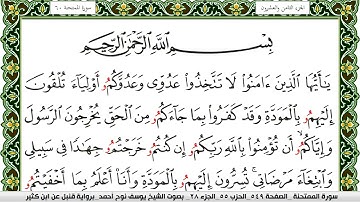 الجزء الثامن والعشرون سورة الممتحنة ٦٠
بِسْمِ ٱللَّهِ ٱلرَّحْمَٰنِ ٱلرَّحِيمِ
يَٰٓأَيُّهَا ٱلَّذِينَ ءَامَنُوا۟ لَا تَتَّخِذُوا۟ عَدُوِّى وَعَدُوَّكُمُۥٓ أَوْلِيَآءَ تُلْقُونَ
إِلَيْهِمُۥ بِٱلْمَوَدَّةِ وَقَدْ كَفَرُوا۟ بِمَا جَآءَكُمُۥ مِنَ ٱلْحَقِّ يُخْرِجُونَ ٱلرَّسُولَ
وَإِيَّاكُمُۥٓ أَن تُؤْمِنُوا۟ بِٱللَّهِ رَبِّكُمُۥٓ إِن كُنتُمُۥ خَرَجْتُمُۥ جِهَٰدًا فِى سَبِيلِى
وَٱبْتِغَآءَ مَرْضَاتِى تُسِرُّونَ إِلَيْهِمُۥ بِٱلْمَوَدَّةِ وَأَنَا۠ أَعْلَمُ بِمَآ أَخْفَيْتُمُۥ
سورة الممتحنة الصفحة ٥٤٩ الحزب ٥٥ الجزء ٢٨ بصوت الشيخ يوسف نوح أحمد برواية قنبل عن ابن كثير